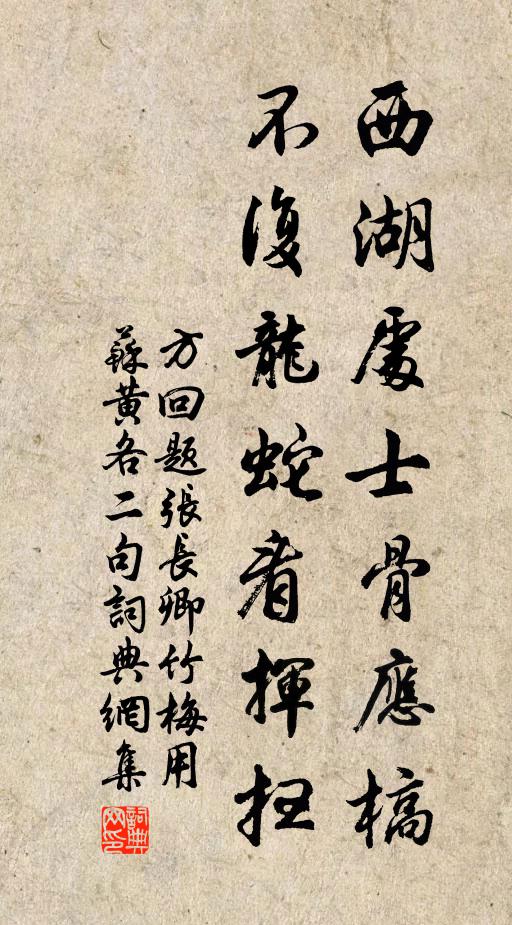 西湖處士骨應槁
不復龍蛇看揮扫
方回题張長卿竹梅用
蘇黄各二句詞典網集
詞典
网印